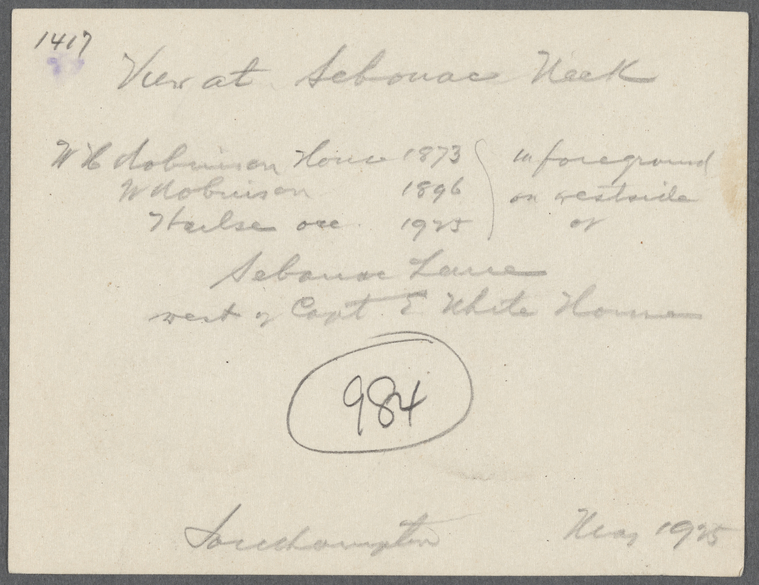 1417
View at Sebonac Neck
W H Robinson House 1873 in foreground
W Robinson 1896 on westside
Hulse occ 1925 of
Sebonac Lane
west of Capt. E White House
984
Southampton May 1925